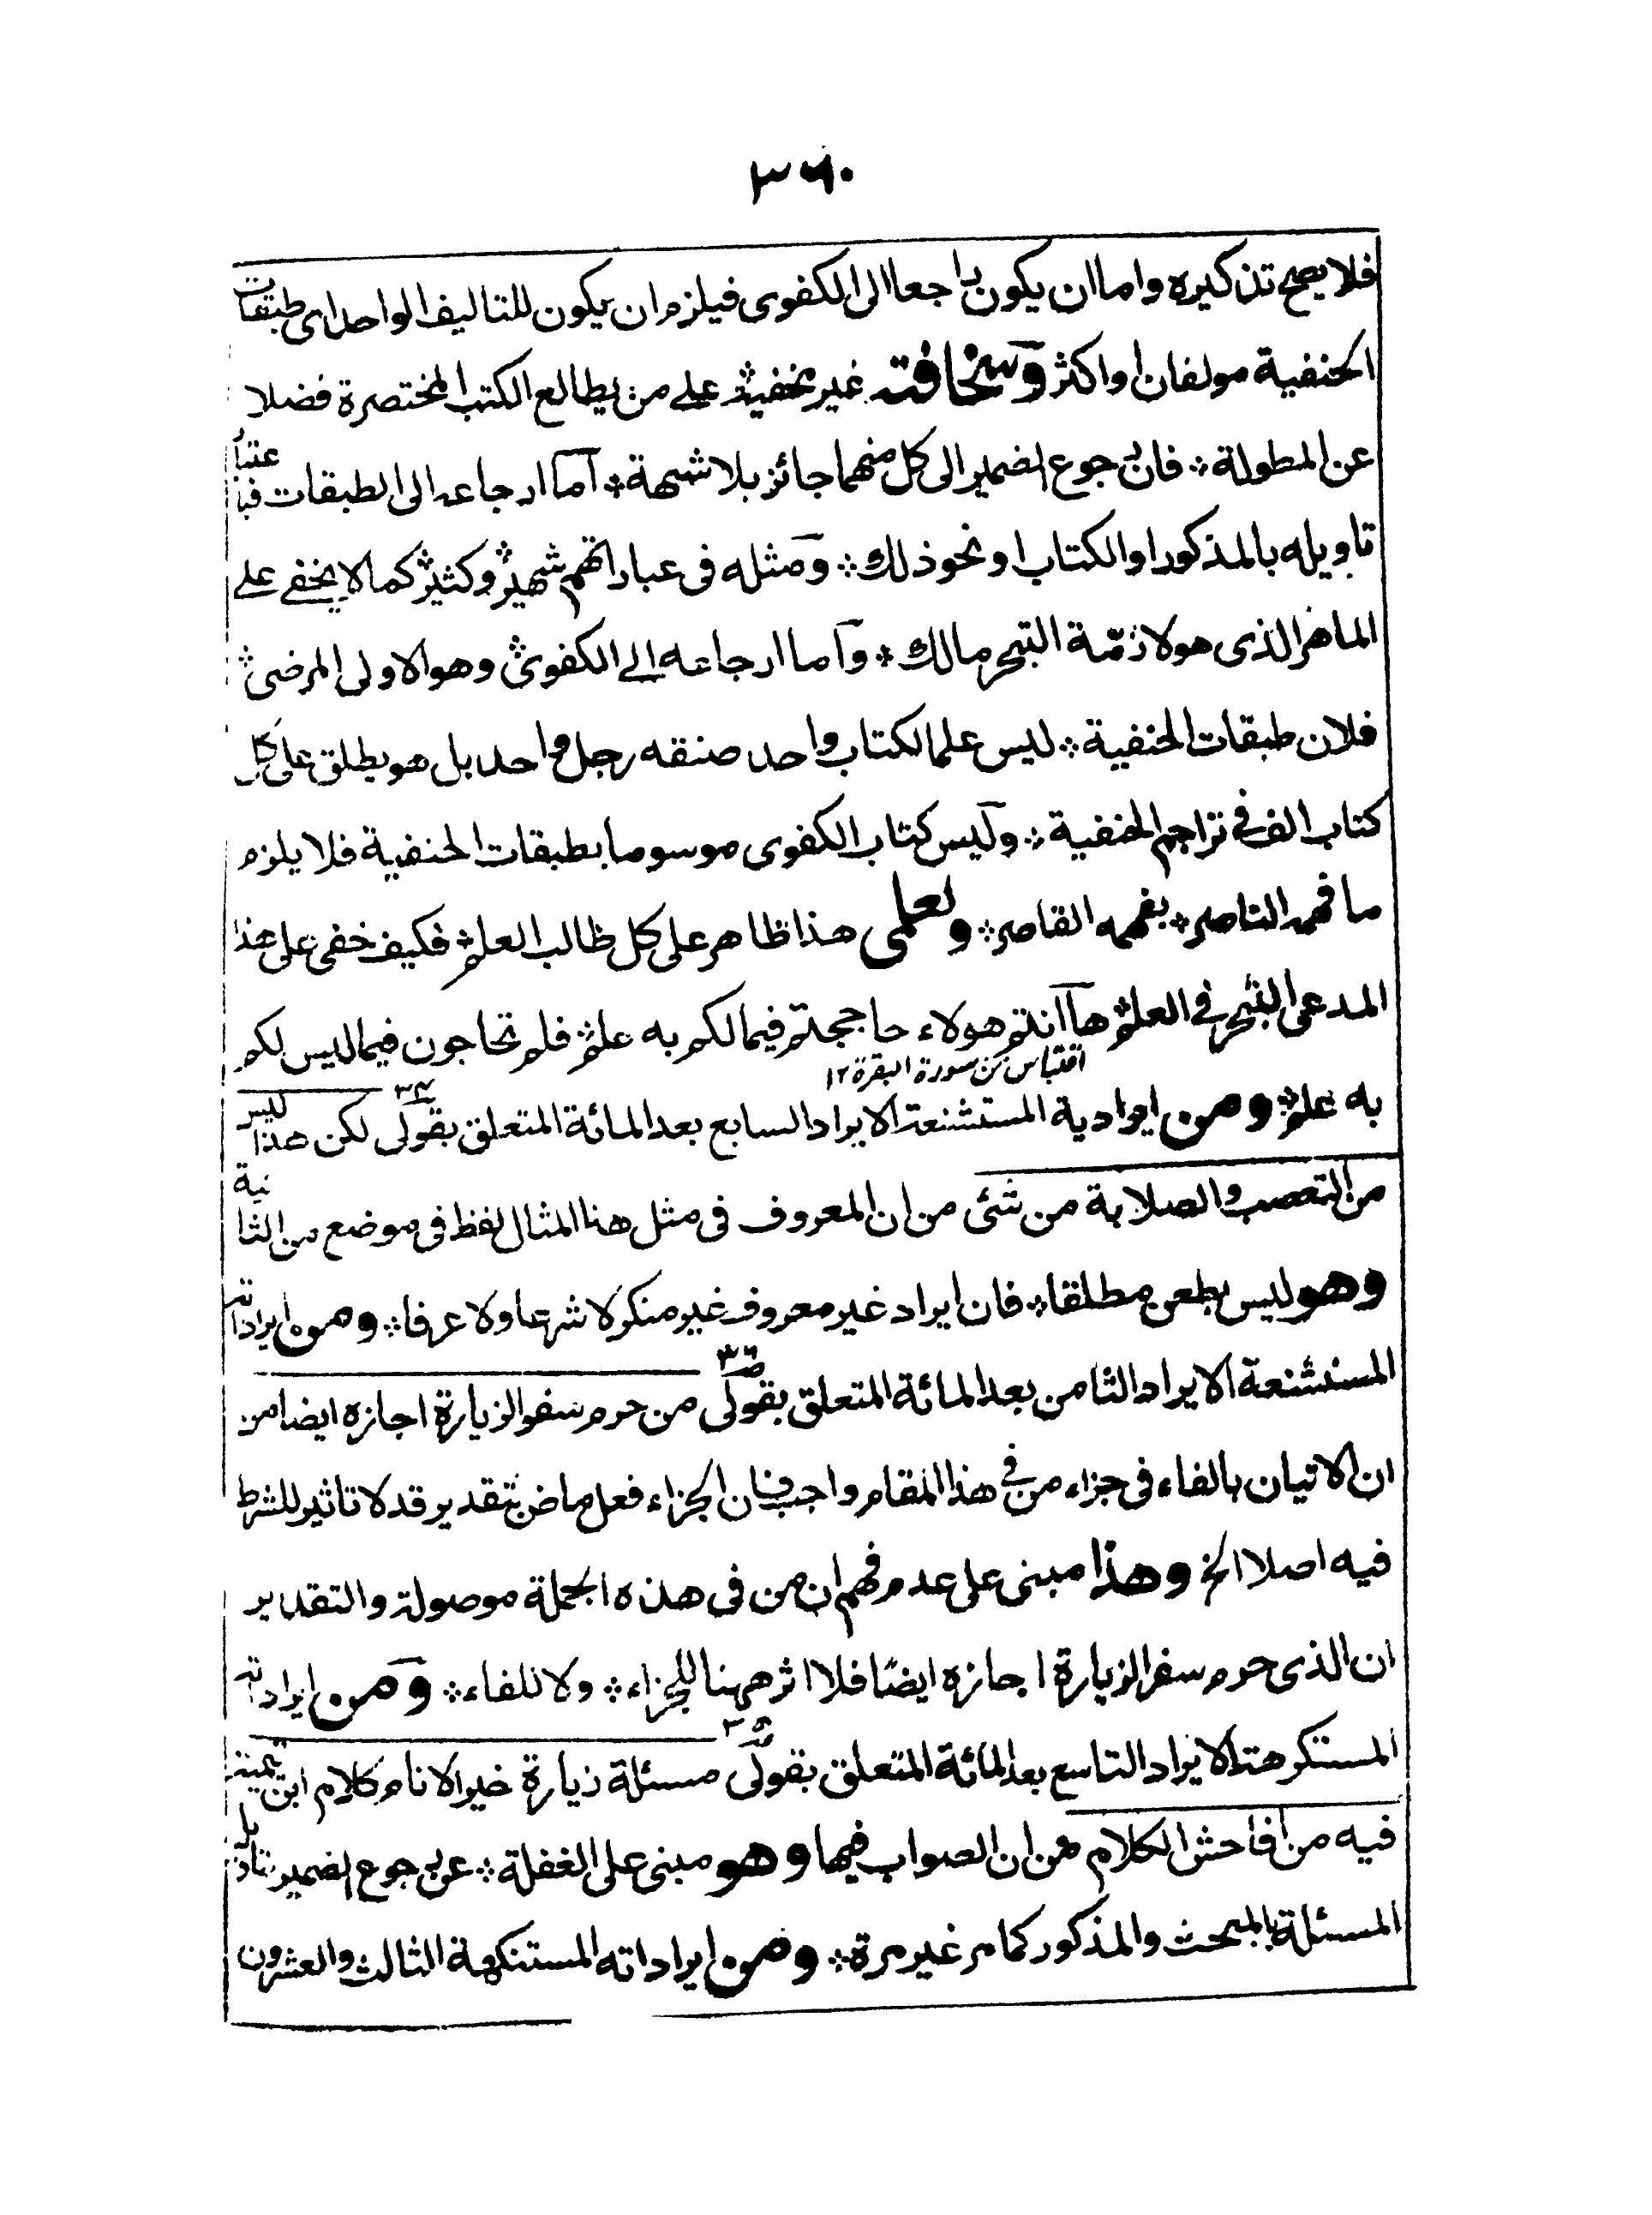 ٣٦٠
فلا يصح تذكيره واما ان يكون راجعا الى الكفوى فيلزم ان يكون للتاليف الواحد اى طبقات
الحنفية مولفان او اكثر وسخافته غير مخفية على من يطالع الكتب المختصرة فضلا
عن المطولة ؞ فان رجوع الضمير الى كل منهما جائز بلا شبهة ؞ اما ارجاعه الى الطبقات فباعتبار
تاويله بالمذكور او الكتاب او نحو ذلك ؞ ومثله فى عباراتهم شهير وكثير كما لا يخفى على
الماهر الذى هو لازمّة التبحر مالك ؞ واما ارجاعه الى الكفوى ؞ وهو الاولى المرضى ؞
فلان طبقات الحنفية ؞ ليس علما لكتاب واحد صنفه رجل واحد بل هو يطلق على كل
كتاب الف فى تراجم الحنفية ؞ وليس كتاب الكفوى موسوما بطبقات الحنفية فلا يلزم
ما فهمه الناصر ؞ بفهمه القاصر ؞ ولعلمى هذا ظاهر على كل طالب العلم ؞ فكيف خفى على هذا
المدعى التبحر فى العلم ؞ ها انتم هولاء حاججتم فيما لكم به علم ؞ فلم تحاجون فيما ليس لكم
اقتباس من سورة البقرة ١٢
به علم ؞ ومن ايرادية المستشنعة الايراد السابع بعد المائة المتعلق بقولى لكن هذا ليس
من التعصب والصلابة من شئ من ان المعروف فى مثل هذا المثال لفظ فى موضع من الثانية
وهو ليس بطعن مطلقا ؞ فان ايراد غير معروف غير منكر لا شرعا ولا عرفا ؞ ومن ايراداته
المستشنعة الايراد الثامن بعد المائة المتعلق بقولى من حرم سفر الزيارة اجازه ايضا من
ان الاتيان بالفاء فى جزاء من فى هذا المقام واجب فان الجزاء فعل ماض بتقدير قد لا تاثير للشرط
فيه اصلا الخ وهذا مبنى على عدم فهم ان من فى هذه الجملة موصولة والتقدير
ان الذى حرم سفر الزيارة اجازه ايضًا فلا اثر ههنا للجزاء ؞ ولا للفاء ؞ ومن ايراداته
المستكرهة الايراد التاسع بعد المائة المتعلق بقولى مسئلة زيارة خير الانام كلام ابن تيمية
فيه من افاحش الكلام من ان الصواب فيها وهو مبنى على الغفلة ؞ عن رجوع الضمير بتاويل
المسئلة بالمبحث والمذكور كما مر غير مرة ؞ ومن ايراداته المستنكهة الثالث والعشرون